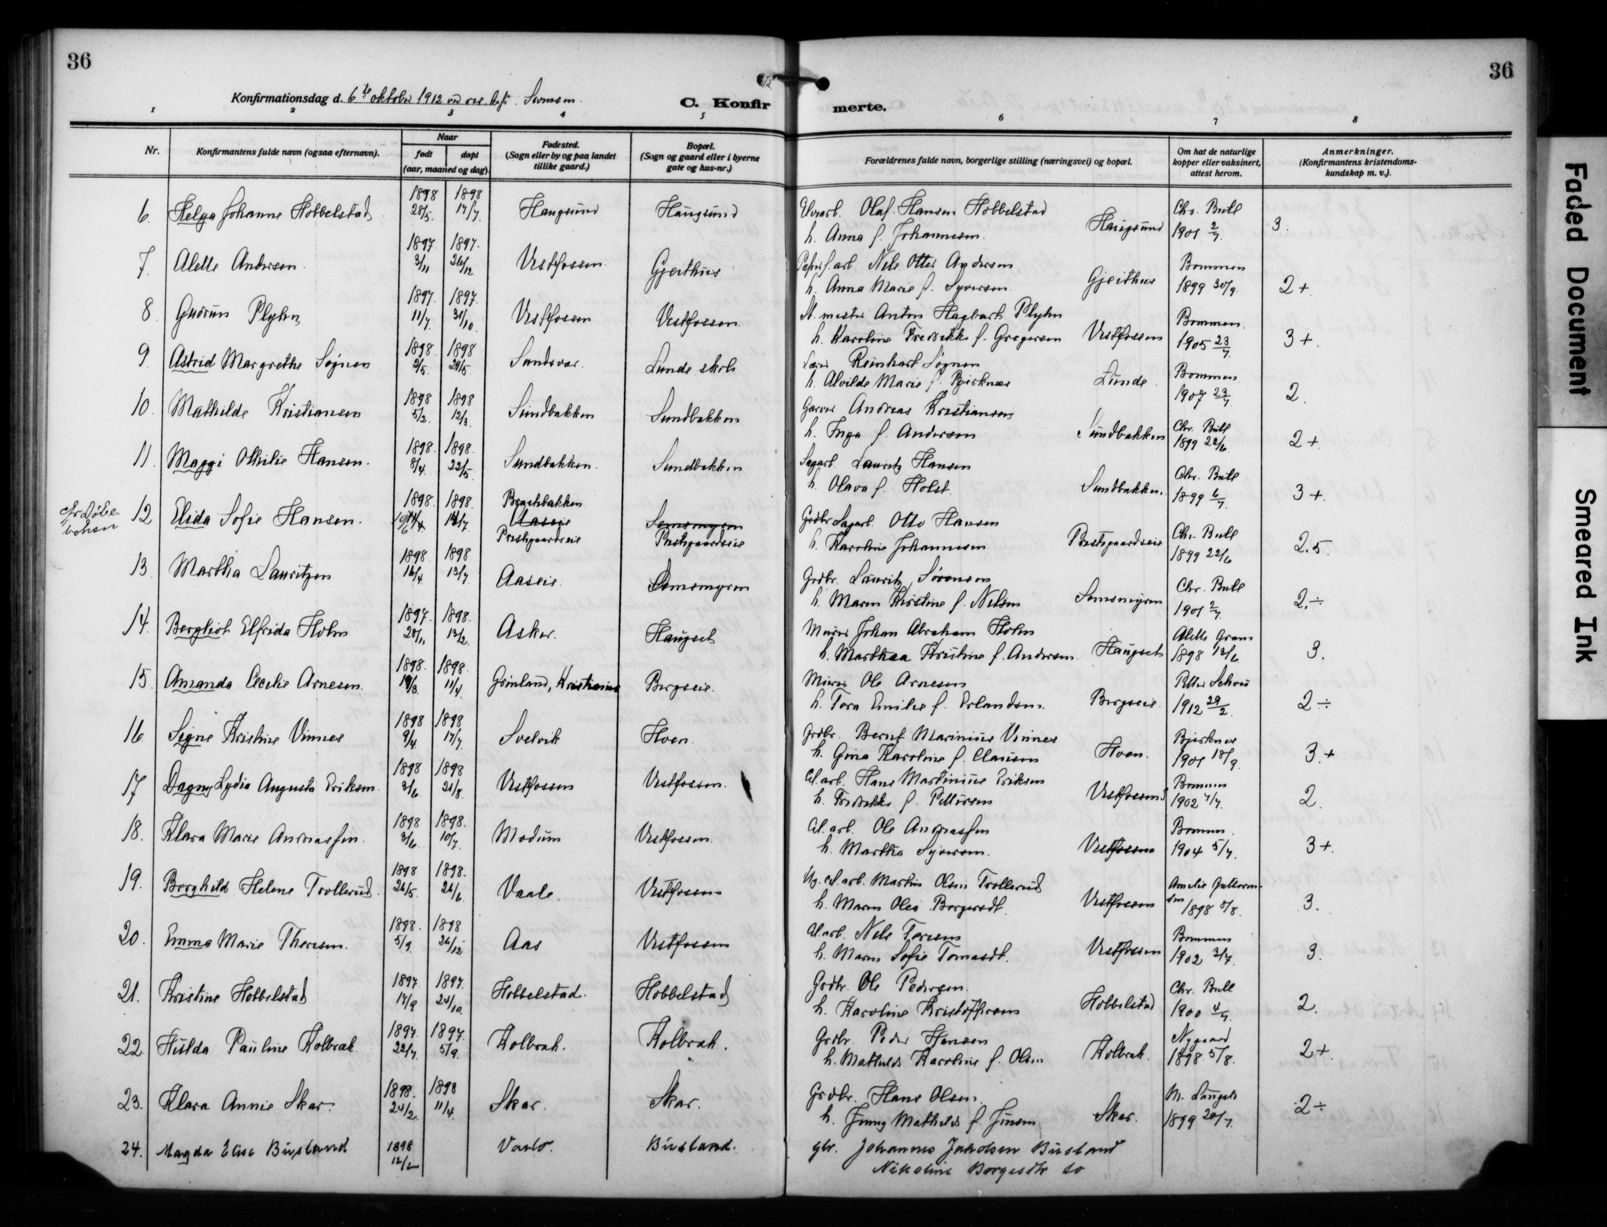 36
36
Konfirmationsdag d. 6te oktober 1912
C. Konfirmerte.
1 2 3 4 5 6 7 8
Nr.
Konfirmantens fulde navn (ogsaa efternavn).
Naar
født
døpt
(aar, maaned og dag).
Fødested.
(Sogn eller by og paa landet
tillike gaard.)
Bopæl.
(Sogn og gaard eller i byerne
gate og hus-nr.)
Forældrenes fulde navn, borgerlige stilling (næringsvei) og bopæl.
Om hat de naturlige
kopper eller vaksinert,
attest herom.
Anmerkninger.
(Konfirmantens kristendoms-
kundskap m. v.).
6. Helga Johanne Hobbelstad 1898 28/5 1898 17/7 Haugsund Haugsund Olaf Hansen Hobbelstad h. Anna f. Johannesen Haugsund Chr. Bull 1901 2/7 3.
7. Alette Andersen 1897 3/11 1897 26/12 Vestfossen Gjeithus Nils Otto Andersen h. Anna Marie f. Syversen Gjeithus Bommen 1899 30/9 2+
8. Gudrun Plyhn 1897 11/7 1897 31/10 Vestfossen Vestfossen Anton Hagbart Plyhn h. Karoline Fredrikke f. Gregersen Vestfossen Bommen 1905 23/7 3+
9. Astrid Margrethe Sognen 1898 2/5 1898 29/5 Sandsvær Lunde skole Reinhart Sognen h. Alvilde Marie f. Bjerknæs Lunde Bommen 1907 23/7 2.
10. Mathilde Kristiansen 1898 5/2 1898 12/3 Sundbakken Sundbakken Garver Andreas Kristiansen h. Inga f. Andersen Sundbakken Chr. Bull 1899 22/6 2+
11. Maggi Othilie Hansen 1898 8/4 1898 22/5 Sundbakken Sundbakken Sagarb. Lauritz Hansen h. Olava f. Holst Sundbakken Chr. Bull 1899 6/7 3+
12. Elida Sofie Hansen 1898 1898 Brækbakken Aaseie Præstgaardseie Semsmyren Præstgaardseie Sagarb. Otto Hansen h. Karoline Johannesen Præstgaardseie Chr. Bull 1899 22/6 2.5
13. Martha Lauritzen 1898 16/4 1898 13/7 Aaseie Semsmyren Grdbr. Lauritz Sørensen h. Maren Kristine f. Nilsen Semsmyren Chr. Bull 1901 2/7 2.÷
14. Bergliot Elfrida Holm 1897 28/11 1898 13/2 Asker Haugset Murer Johan Abraham Holm h. Marthea Kristine f. Andersen Haugset Alette Gram 1898 13/6 3.
15. Amanda Cecilie Arnesen 1898 19/3 1898 11/4 Grønland, Kristiania Bergseie Murer Ole Arnesen h. Tora Emilie f. Erlandsen Bergseie Petter Schou 1912 29/2 2÷
16. Signe Kristine Vinnes 1898 9/4 1898 17/7 Svelvik Hoen Grdbr. Bernt Marinius Vinnes h. Gina Karoline f. Clausen Hoen Bjerknes 1901 18/9 3+
17. Dagny Lydia Augusta Eriksen 1898 3/6 1898 21/8 Vestfossen Vestfossen Cel. arb. Hans Martinius Eriksen h. Fredrikke f. Pettersen Vestfossen Bommen 1902 4/7 2.
18. Klara Marie Andreassen 1898 3/6 1898 10/7 Modum Vestfossen Cel. arb. Ole Andreassen h. Martha Syversen Vestfossen Bommen 1904 5/7 3+
19. Borghild Helene Trollerud 1898 26/5 1898 26/6 Vaale Vestfossen arb. Martin Olsen Trollerud h. Maren Olea Borgersdt. Vestfossen Amelie Guttormsen 1898 8/8 3.
20. Emma Marie Thoresen 1898 5/9 1898 26/12 Aas Vestfossen Cel. arb. Nils Toresen h. Maren Sofie Tomasdt. Vestfossen Bommen 1902 3/7 3.
21. Kristine Hobbelstad 1897 17/9 1897 24/10 Hobbelstad Hobbelstad Grdbr. Ole Pedersen h. Karoline Kristoffersen Hobbelstad Chr. Bull 1900 4/7 2.
22. Hulda Pauline Kolbræk 1897 22/7 1897 5/9 Kolbræk Kolbræk Grdbr. Peder Hansen h. Mathilde Karoline f. Olsen Kolbræk Nygaard 1898 5/8 2+
23. Klara Annie Skar 1898 20/2 1898 11/4 Skar Skar Grdbr. Hans Olsen h. Jenny Mathilde f. Jensen Skar 1899 20/7 2÷
24. Magda Elise Busland 1898 12/2 Varlo Busland gbr. Johannes Jakobsen Busland Nikoline Borgesdtr do
Faded Document
Smeared Ink